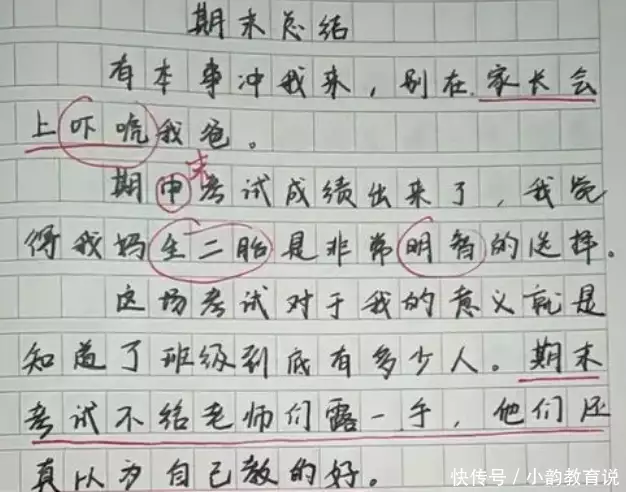 期末总结
有本事冲我来，别在家长会
上吓唬我爸。
末
期中考试成绩出来了，我觉
得我妈生二胎是非常明智的选择。
这场考试对于我的意义就是
知道了班级到底有多少人。期末
考试不给老师们露一手，他们还
真以为自己教的好。
快传号／小韵教育说